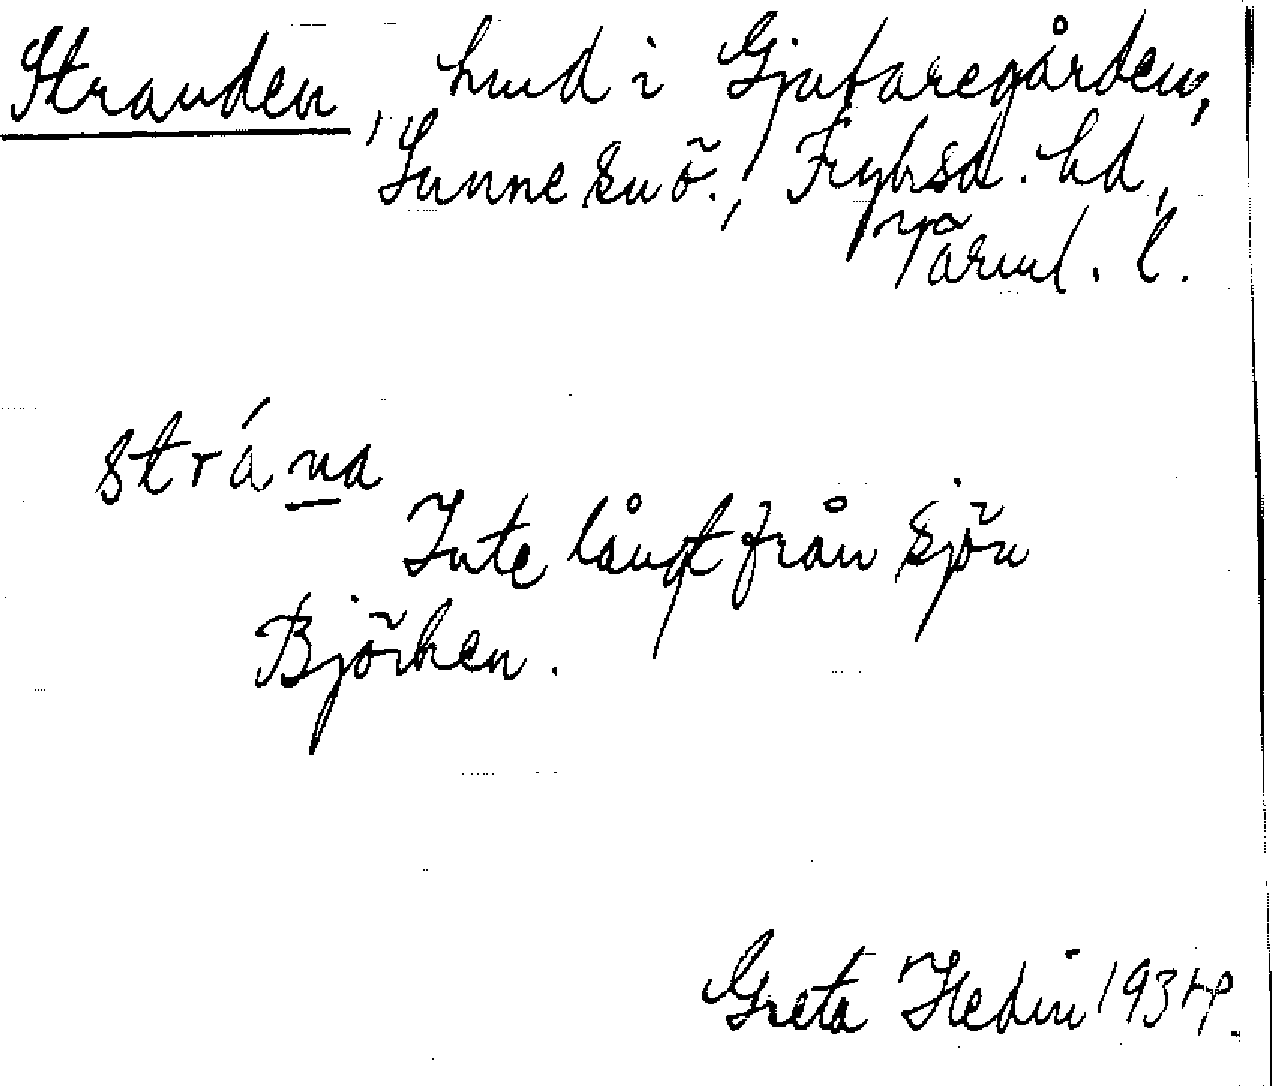 Stranden, hmd i Gjutaregården,
Sunne sn ö., Fryksd. hd,
Värml. l.
strána
Inte långt från sjön
Björken.
Greta Hedin 1934.